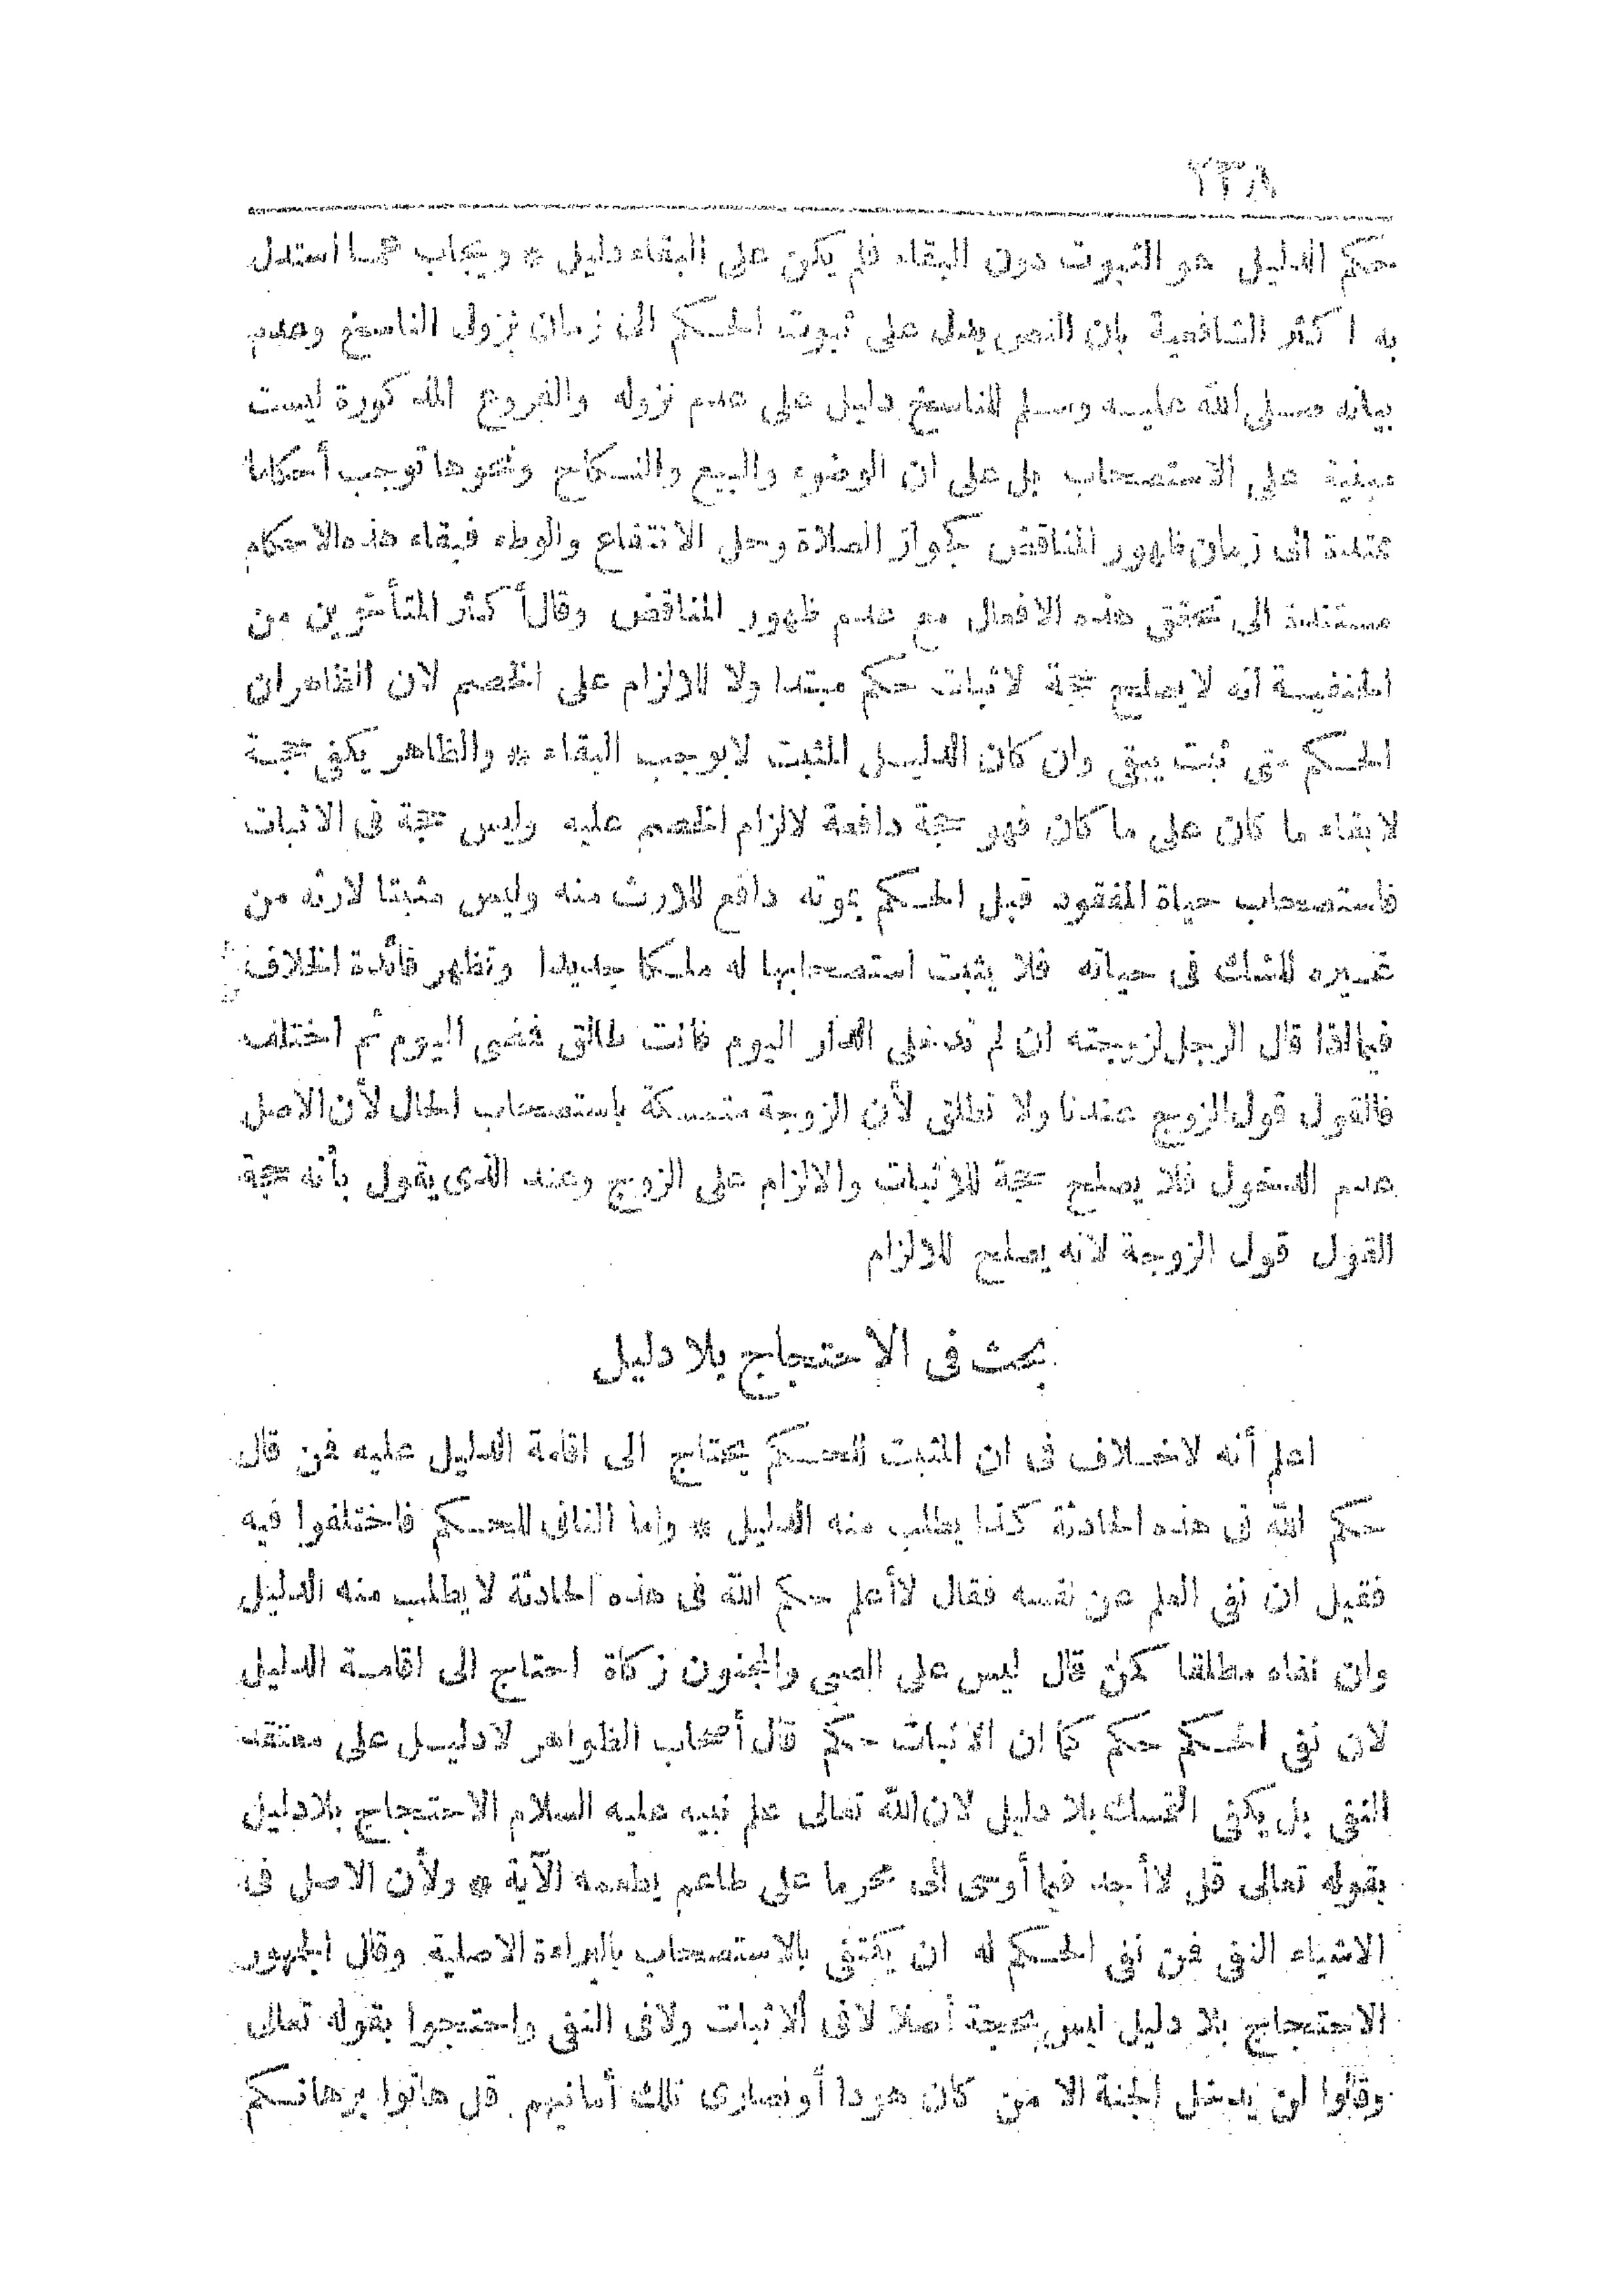 ٢٣٨
حكم الدليل هو الثبوت دون البقاء فلم يكن على البقاء دليل * ويجاب عما استدل
به اكثر الشافعية بان النص يدل على ثبوت الحكم الى زمان نزول الناسخ وعدم
بيانه صلى الله عليه وسلم للناسخ دليل على عدم نزوله والفروع المذكورة ليست
مبنية على الاستصحاب بل على ان الوضوء والبيع والنكاح ونحوها توجب أحكاما
ممتدة الى زمان ظهور المناقض كجواز الصلاة وحل الانتفاع والوطء فبقاء هذه الاحكام
مستندة الى تحقق هذه الافعال مع عدم ظهور المناقض وقال أكثر المتأخرين من
الحنفية انه لا يصلح حجة لاثبات حكم مبتدا ولا للالزام على الخصم لان الظاهر ان
الحكم متى ثبت يبقى وان كان الدليل المثبت لا يوجب البقاء * والظاهر يكفى حجة
لابقاء ما كان على ما كان فهو حجة دافعة لالزام الخصم عليه وليس حجة فى الاثبات
فاستصحاب حياة المفقود قبل الحكم بموته دافع للارث منه وليس مثبتا لارثه من
غيره للشك فى حياته فلا يثبت استصحابها له ملكا جديدا وتظهر فائدة الخلاف
فيما اذا قال الرجل لزوجته ان لم تدخلى الدار اليوم فانت طالق فمضى اليوم ثم اختلف
فالقول قول الزوج عندنا ولا تطلق لأن الزوجة متمسكة باستصحاب الحال لأن الاصل
عدم الدخول فلا يصلح حجة للاثبات والالزام على الزوج وعند الذى يقول بأنه حجة
القول قول الزوجة لانه يصلح للالزام
بحث فى الاحتجاج بلا دليل
اعلم أنه لا خلاف فى ان المثبت للحكم يحتاج الى اقامة الدليل عليه فمن قال
حكم الله فى هذه الحادثة كذا يطلب منه الدليل * واما النافى للحكم فاختلفوا فيه
فقيل ان نفى العلم عن نفسه فقال لا أعلم حكم الله فى هذه الحادثة لا يطلب منه الدليل
وان نفاه مطلقا كمن قال ليس على الصبى والمجنون زكاة احتاج الى اقامة الدليل
لان نفى الحكم حكم كما ان الاثبات حكم قال أصحاب الظواهر لا دليل على معتقد
النفى بل يكفى التمسك بلا دليل لان الله تعالى علم نبيه عليه السلام الاحتجاج بلا دليل
بقوله تعالى قل لا أجد فيما أوحى الى محرما على طاعم يطعمه الآية * ولأن الاصل فى
الاشياء النفى فمن نفى الحكم له ان يكتفى بالاستصحاب بالبراءة الاصلية وقال الجمهور
الاحتجاج بلا دليل ليس بحجة أصلا لا فى الاثبات ولا فى النفى واحتجوا بقوله تعالى
وقالوا لن يدخل الجنة الا من كان هودا أو نصارى تلك أمانيهم قل هاتوا برهانكم